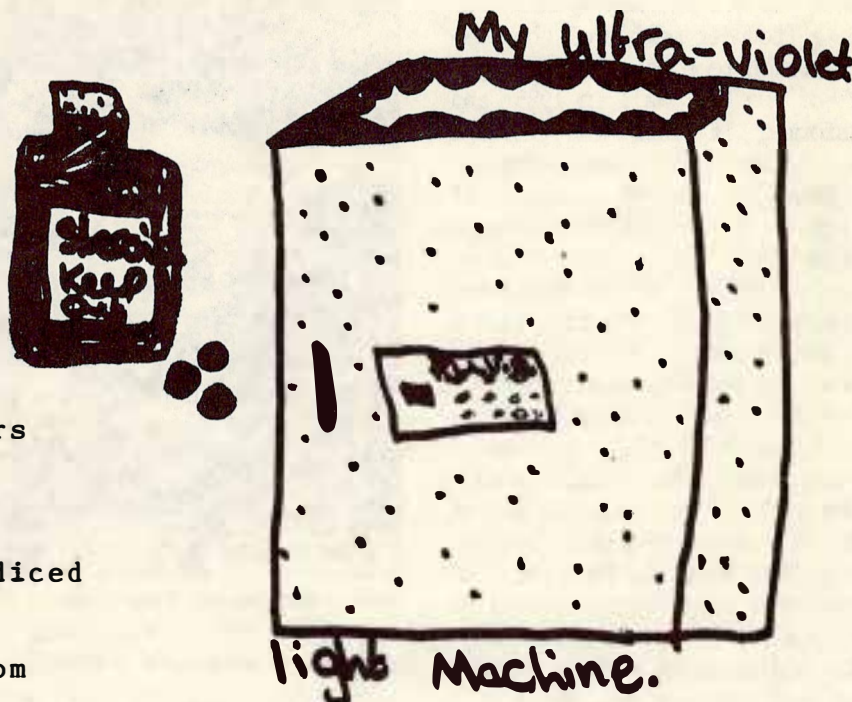 My ultra-violet
Keep
Out
rs
liced
om
light Machine.